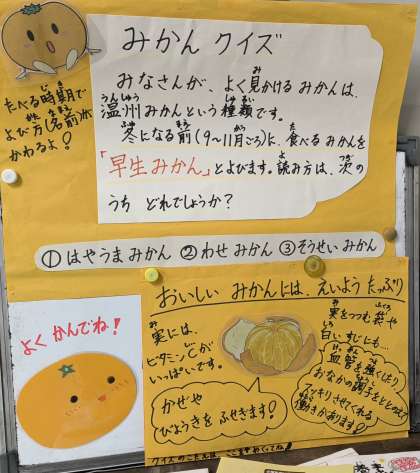 みかん クイズ
みなさんが、よく見かける みかんは、
温州みかんという種類です。
冬になる前(9〜11月ごろ)に、食べるみかんを
「早生みかん」とよびます。読み方は、次の
うち どれでしょうか?
たべる時期で
よび方(名前)が
かわるよ!
①はやうまみかん ②わせみかん ③そうせいみかん
よくかんでね!
おいしい みかんには、えいようたっぷり
実には、
ビタミンCが
いっぱいです。
かぜや
びょうきを ふせぎます!
実をつつむ袋や
白いすじにも…
血管を強くしたり
おなかの調子をととのえ
スッキリさせてくれる
働きがあります!